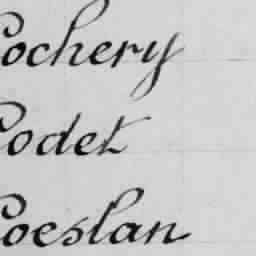 Cochery
Codet
Coeslan